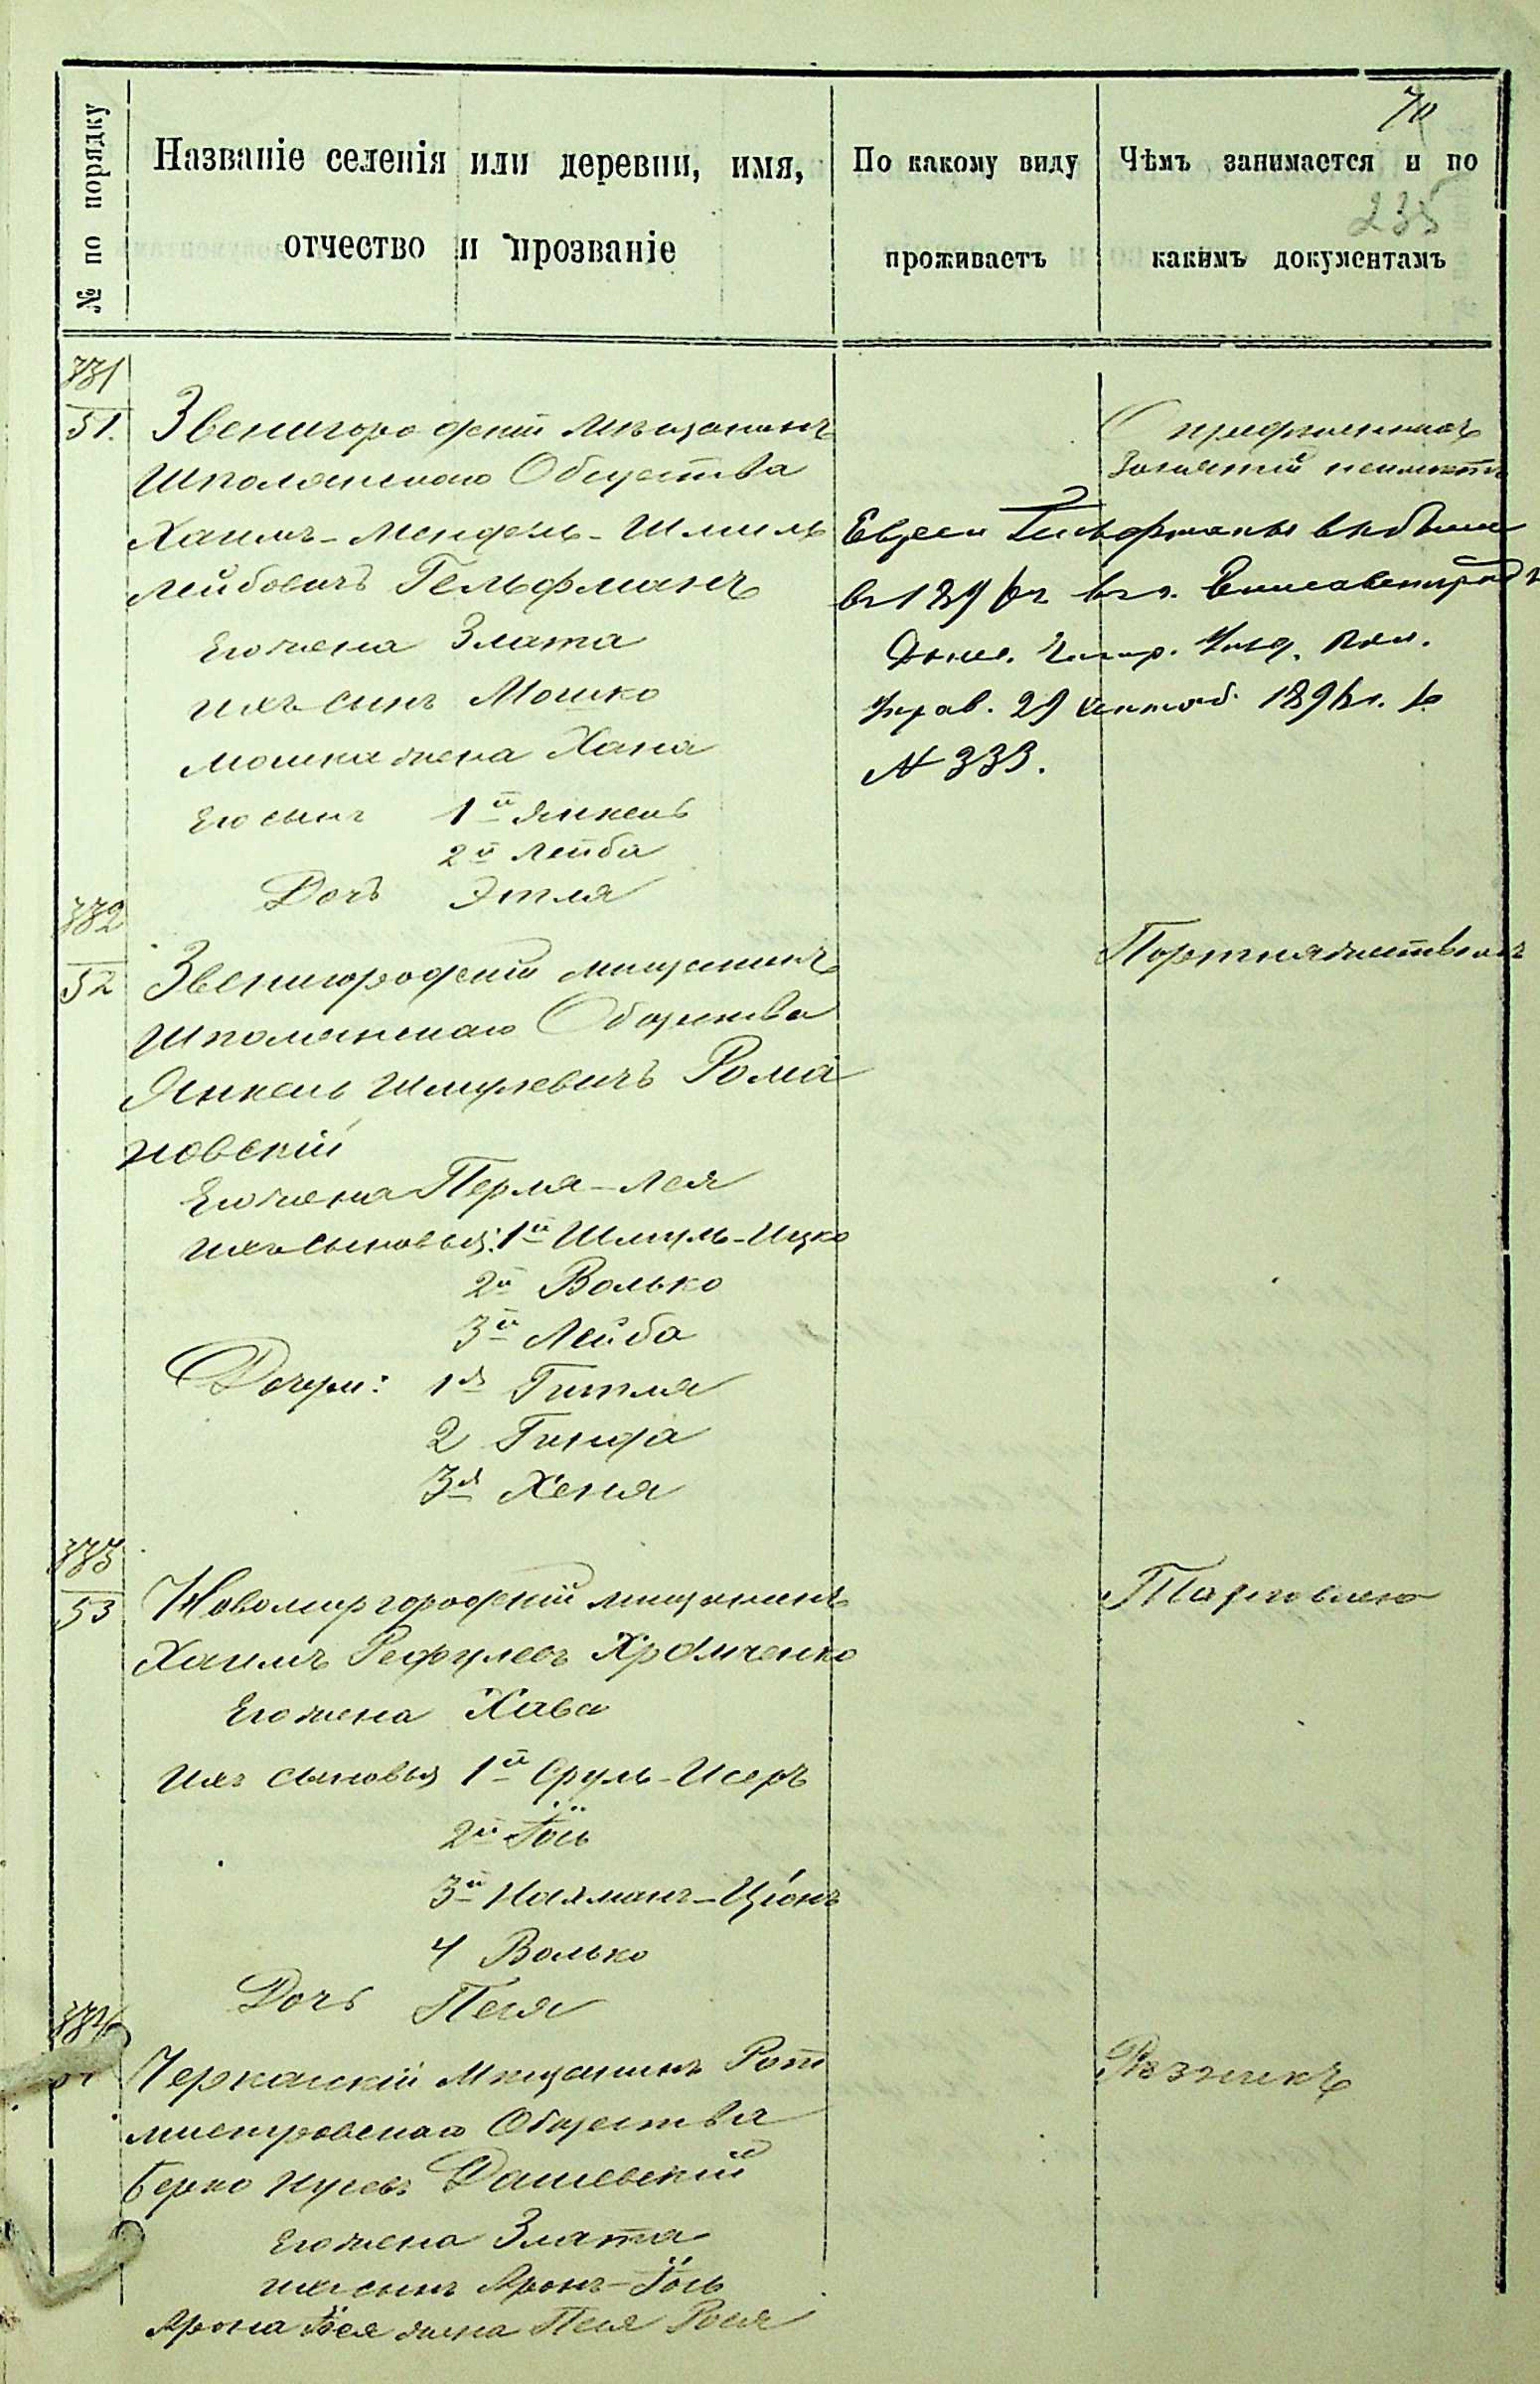 70
№ по порядку
Названіе селенія или деревни, имя,
отчество и прозваніе
По какому виду
проживаетъ
Чѣмъ занимается и по
какимъ документамъ
235
331
51.
Звенигородскій мѣщанинъ
Шполянскаго Общества
Хаимъ-Мендель-Шмиль
Лейбовичъ Гельфманъ
Его жена Злата
ихъ сынъ Мошко
Мошка жена Хана
Его сынъ 1й Янкель
2й Лейба
Дочь Этля
Опредѣленныхъ
Занятій неимѣетъ
Евреи Гельфманы выбыли
въ 189 въ г. Елисаветградъ
Донес. Пол.
Управ. 29 189 г. за
№ 333.
332
52
Звенигородскій мищанинъ
Шполянскаго Общества
Янкель Шмулевичъ Рома
новскій
Его жена Перля-Лея
ихъ сыновья: 1й Шмуль-Ицко
2й Волько
3й Лейба
Дочери: 1я Гитля
2 Гинда
3я Хеня
Портняжествомъ
333
53
Новомиргородскій мищанинъ
Хаимъ Рефулевъ Храмченко
Его жена Хава
Ихъ сыновья 1й Сруль-Исеръ
2й Іось
3й Нахманъ-Ціонъ
4 Волько
Дочь Песя
Торговлею
334
Черкаскій Мищанинъ Рот
мистровскаго Общества
Берко Дашевскій
Его жена Злата
ихъ сынъ Аронъ-Іось
Арона Іося жена Песя Рося
Рѣзникъ